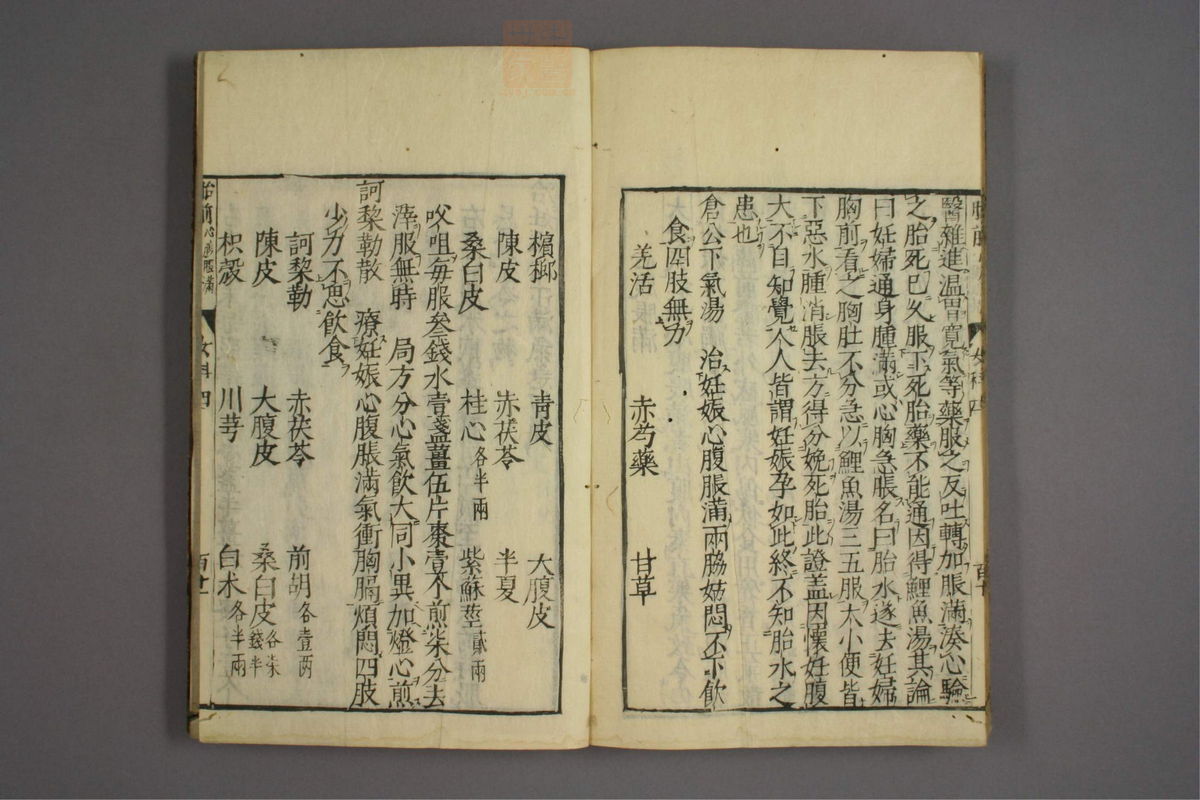 醫雜進温胃寛氣等藥服之反吐轉加脹滿湊心驗
之胎死已久服下死胎藥不能通因得鯉魚湯其論
曰妊婦通身腫滿或心胸急脹名曰胎水遂去妊婦
胸前看之胸肚不分急以鯉魚湯三五服大小便皆
下惡水腫消脹去方得分娩死胎此證盖因懷妊腹
大不自知覺人人皆謂妊娠孕如此終不知胎水之
患也
倉公下氣湯　治妊娠心腹脹滿兩脇妨悶不下飲
食四肢無力
羌活　赤芍藥　甘草
檳榔　青皮　大腹皮
陳皮　赤茯苓　半夏
桑白皮　桂心各半兩　紫蘇莖貳兩
㕮咀每服叁錢水壹盞薑伍片棗壹个煎柒分去
滓服無時　局方分心氣飲大同小異加燈心煎
訶黎勒散　療妊娠心腹脹滿氣衝胸膈煩悶四肢
少力不思飲食
訶黎勒　赤茯苓　前胡各壹两
陳皮　大腹皮　桑白皮各柒錢半
枳殻　川芎　白术各半兩
胎前心腹脹滿　女科四　百十一